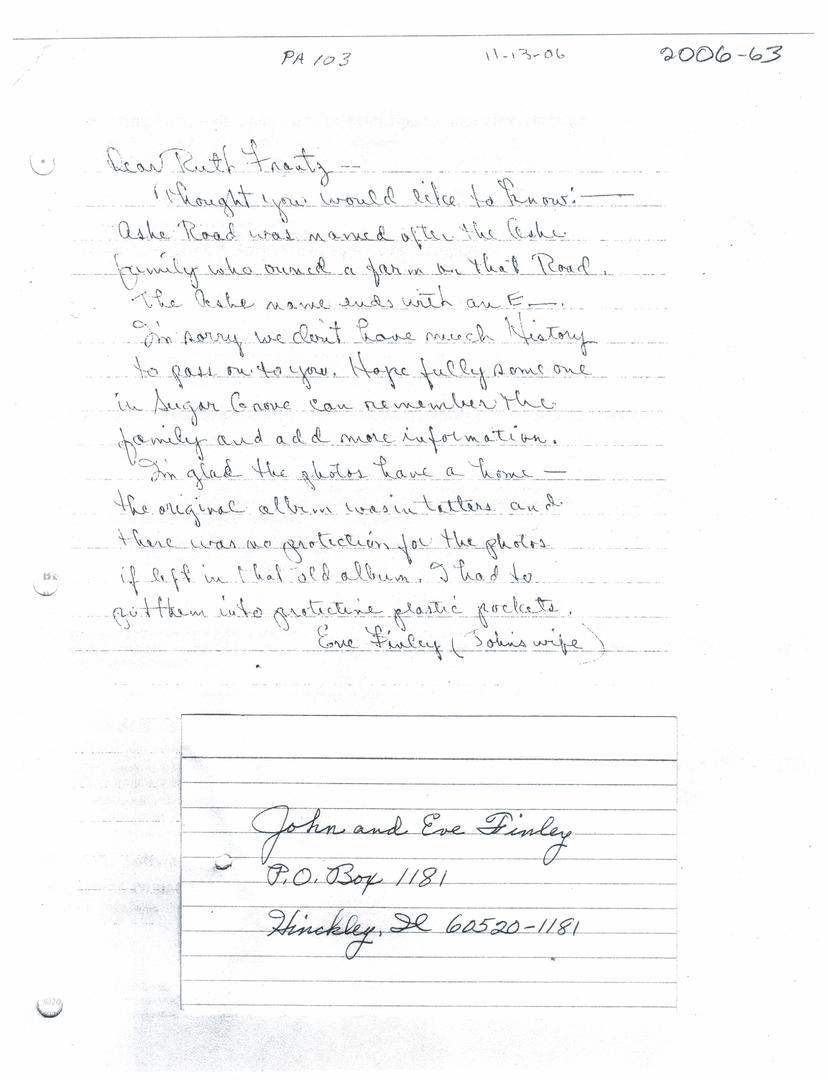 PA 103 11-13-06 2006-63
Dear Ruth Frantz —
Thought you would like to know: —
Ashe Road was named after the Ashe
family who owned a farm on that Road.
The Ashe name ends with an E—.
I'm sorry we don't have much History
to pass on to you. Hope fully some one
in Sugar Grove can remember the
family and add more information.
I'm glad the photos have a home —
the original album was in tatters and
there was no protection for the photos
if left in that old album. I had to
put them into protective plastic pockets.
Eve Finley (John's wife)
John and Eve Finley
P.O. Box 1181
Hinckley, Il 60520-1181